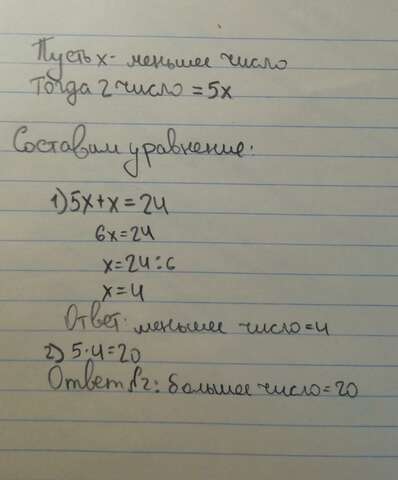 Пусть х- меньшее число
Тогда 2 число = 5х
Составим уравнение:
1) 5х+х=24
6х=24
х=24:6
х=4
Ответ: меньшее число=4
2) 5·4=20
Ответ №2: большее число=20